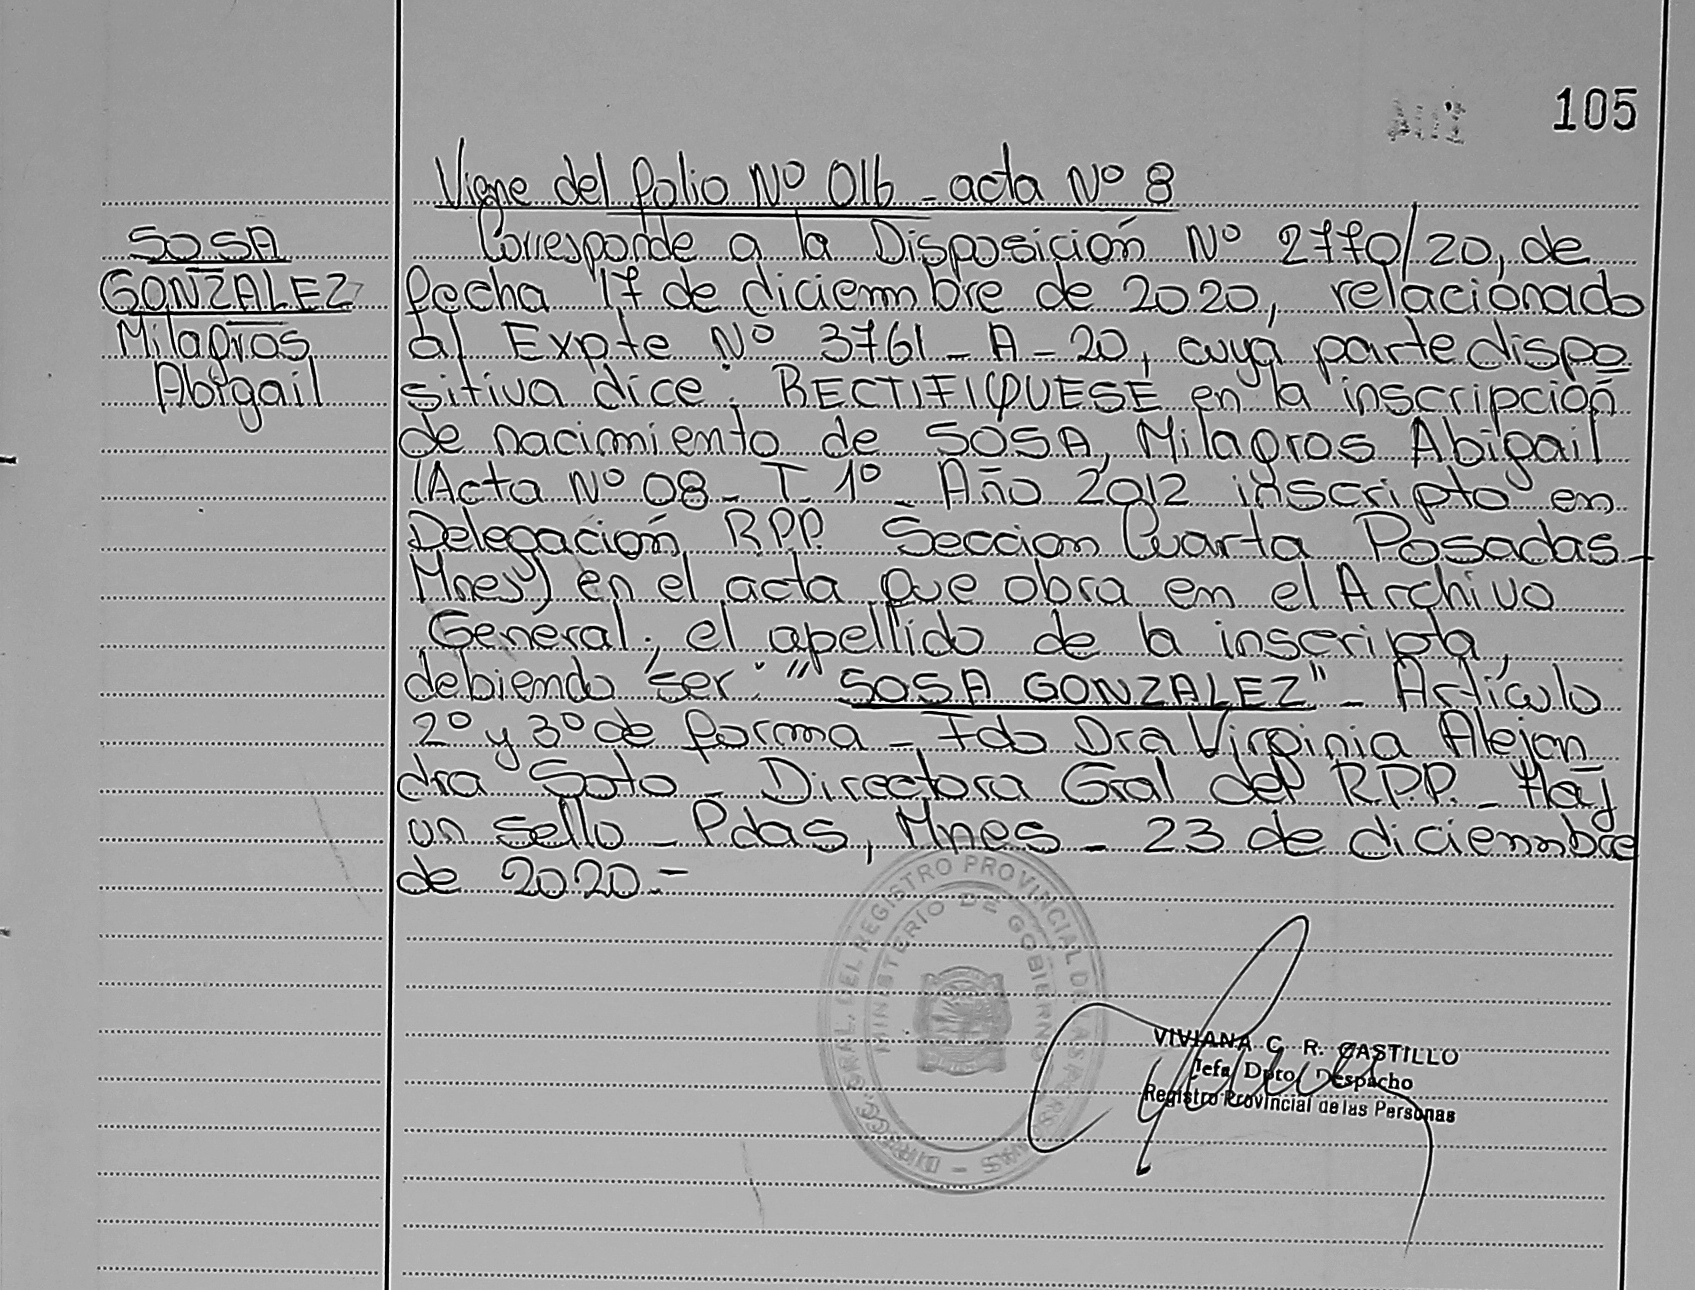 105
Viene del folio Nº 016 - acta Nº 8
SOSA
GONZALEZ
Milagros
Abigail
Corresponde a la Disposición Nº 2770/20, de
fecha 17 de diciembre de 2020, relacionado
al Expte Nº 3761 - A - 20, cuya parte dispo
sitiva dice: RECTIFIQUESE en la inscripción
de nacimiento de SOSA, Milagros Abigail
(Acta Nº 08 - T 1º - Año 2012 inscripto en
Delegación R.P.P. Seccion Cuarta Posadas -
Mnes) en el acta que obra en el Archivo
General; el apellido de la inscripta,
debiendo ser: "SOSA GONZALEZ" - Artículo
2º y 3º de forma - Fdo Dra Virginia Alejan
dra Soto - Directora Gral del R.P.P. - Hay
un sello - Pdas, Mnes - 23 de diciembre
de 2020.-
DIRECC. GRAL. DEL REGISTRO PROVINCIAL DE LAS PERSONAS -
MINISTERIO DE GOBIERNO
VIVIANA C. R. CASTILLO
Jefa Dpto Despacho
Registro Provincial de las Personas